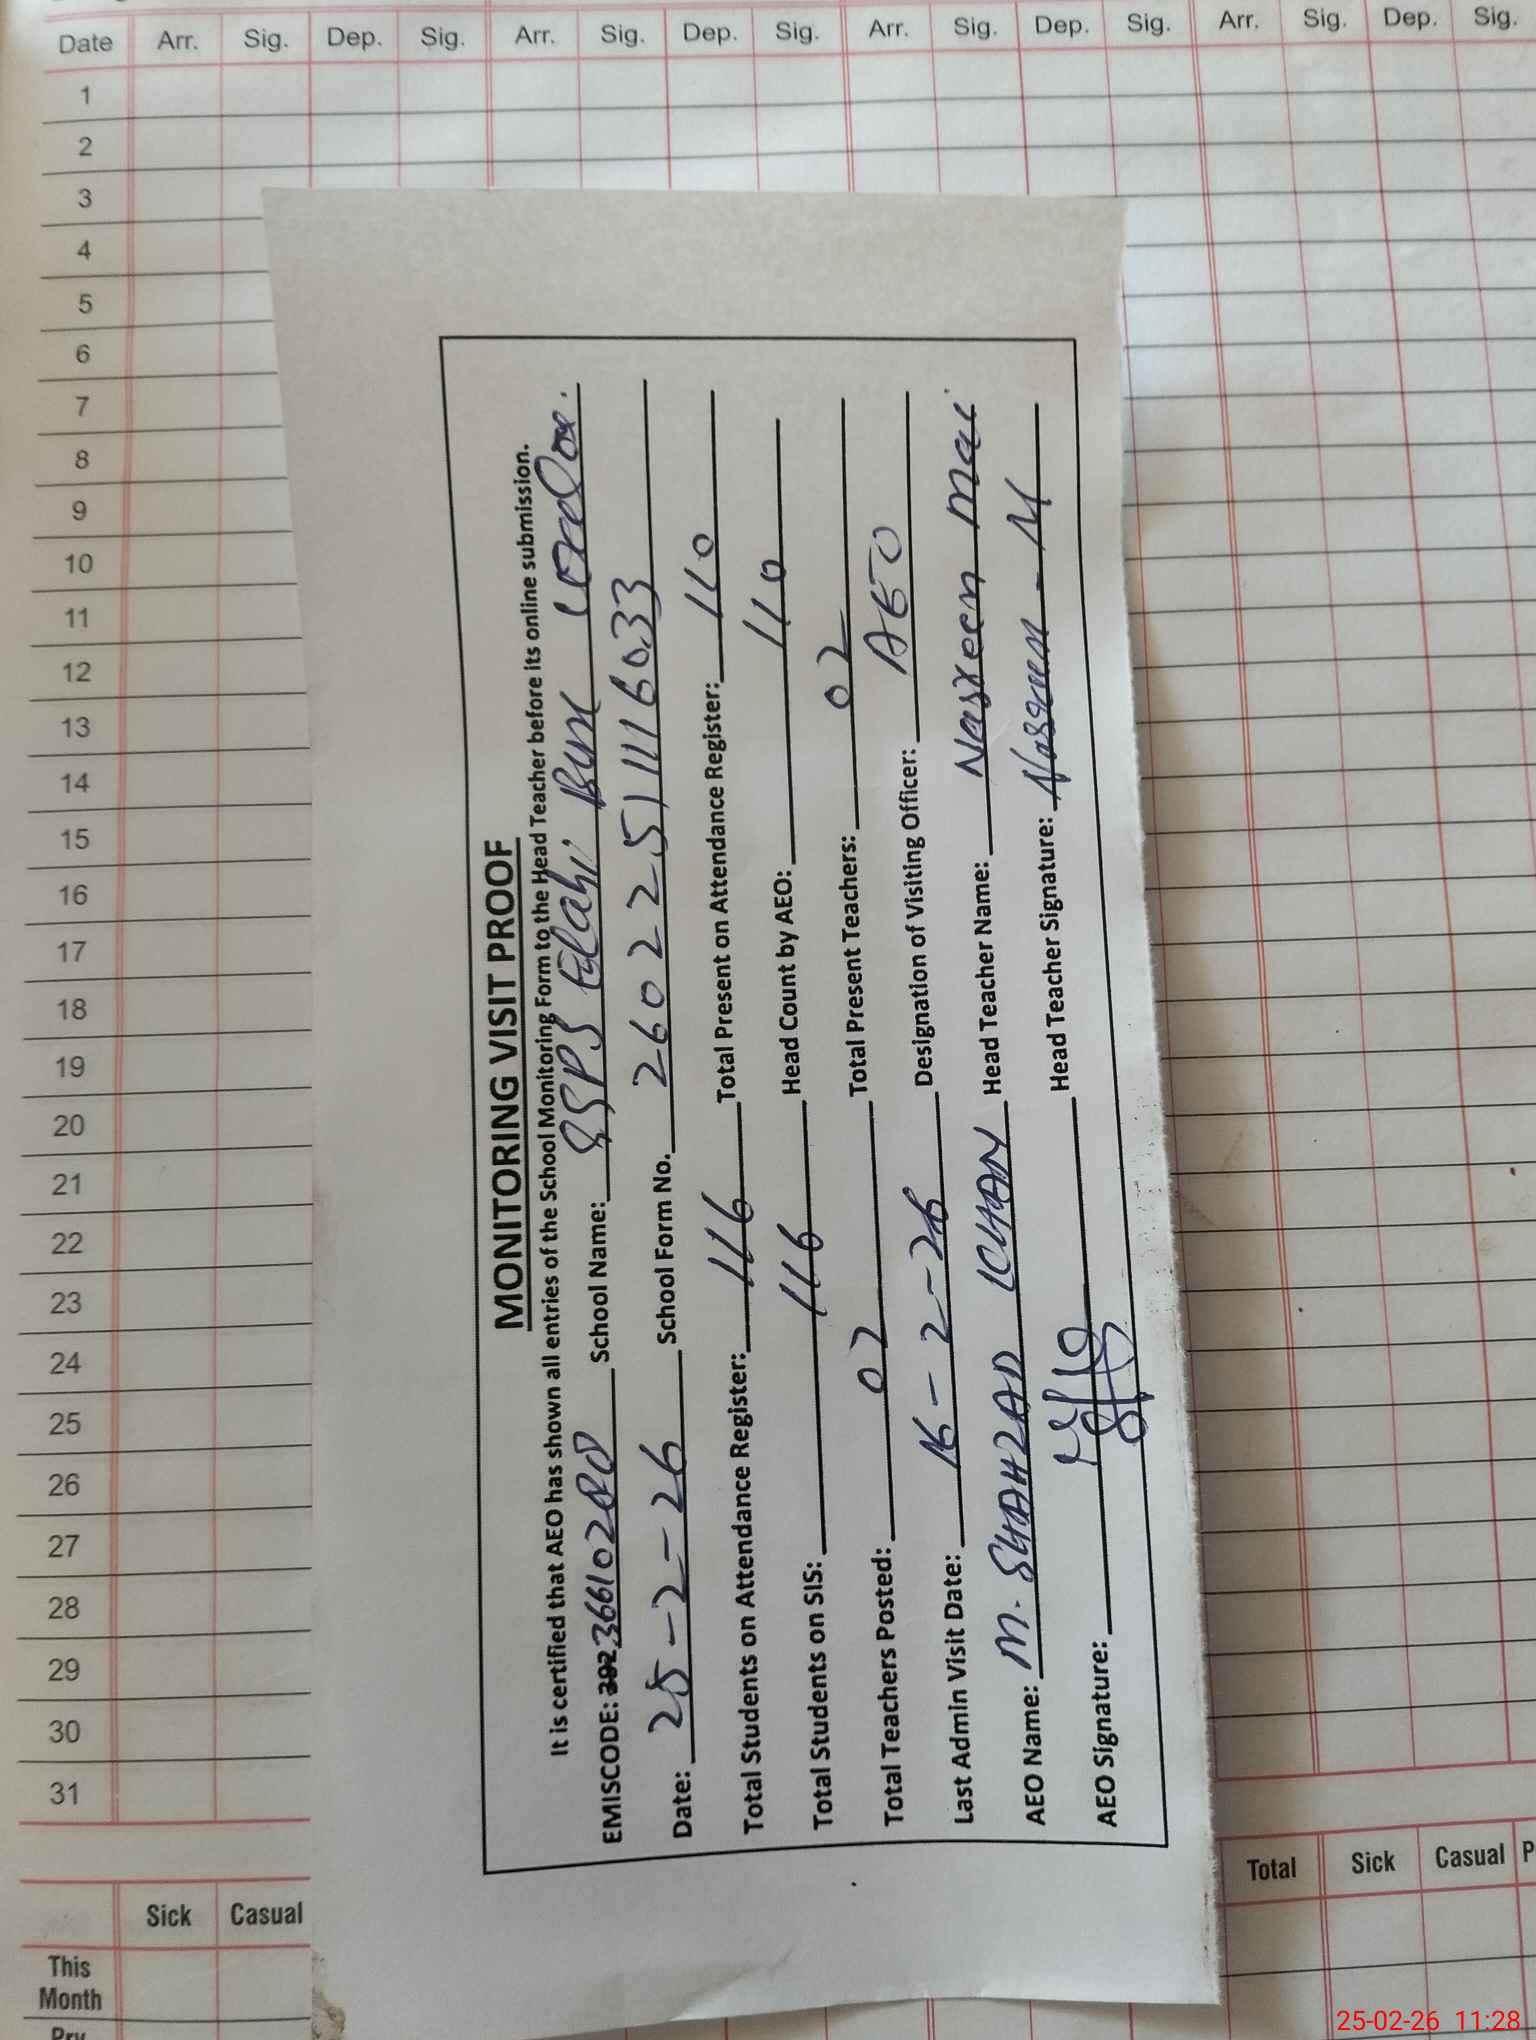 Date Arr. Sig. Dep. Sig. Arr. Sig. Dep. Sig. Arr. Sig. Dep. Sig. Arr. Sig. Dep. Sig.
1
2
3
4
5
6
7
8
9
10
11
12
13
14
15
16
17
18
19
20
21
22
23
24
25
26
27
28
29
30
31
MONITORING VISIT PROOF
It is certified that AEO has shown all entries of the School Monitoring Form to the Head Teacher before its online submission.
EMISCODE: 36610280 School Name: Elahi
Date: 25-2-26 School Form No. 2602251116033
Total Students on Attendance Register: 116 Total Present on Attendance Register: 110
Total Students on SIS: 116 Head Count by AEO: 110
Total Teachers Posted: 02 Total Present Teachers: 02
Last Admin Visit Date: 16-2-26 Designation of Visiting Officer: AEO
AEO Name: M. SHAHZAD KHAN Head Teacher Name: Nasreen Mai
AEO Signature: Head Teacher Signature:
Total Sick Casual
Sick Casual
This
Month
25-02-26 11:28